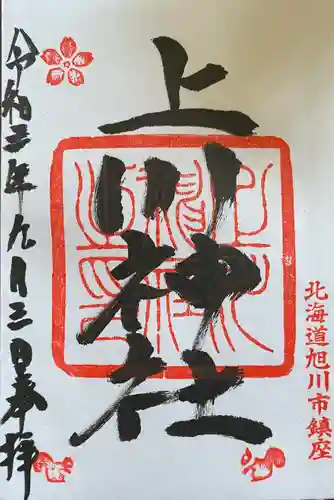 北海道旭川市鎮座
上川神社
令和三年九月三日奉拝